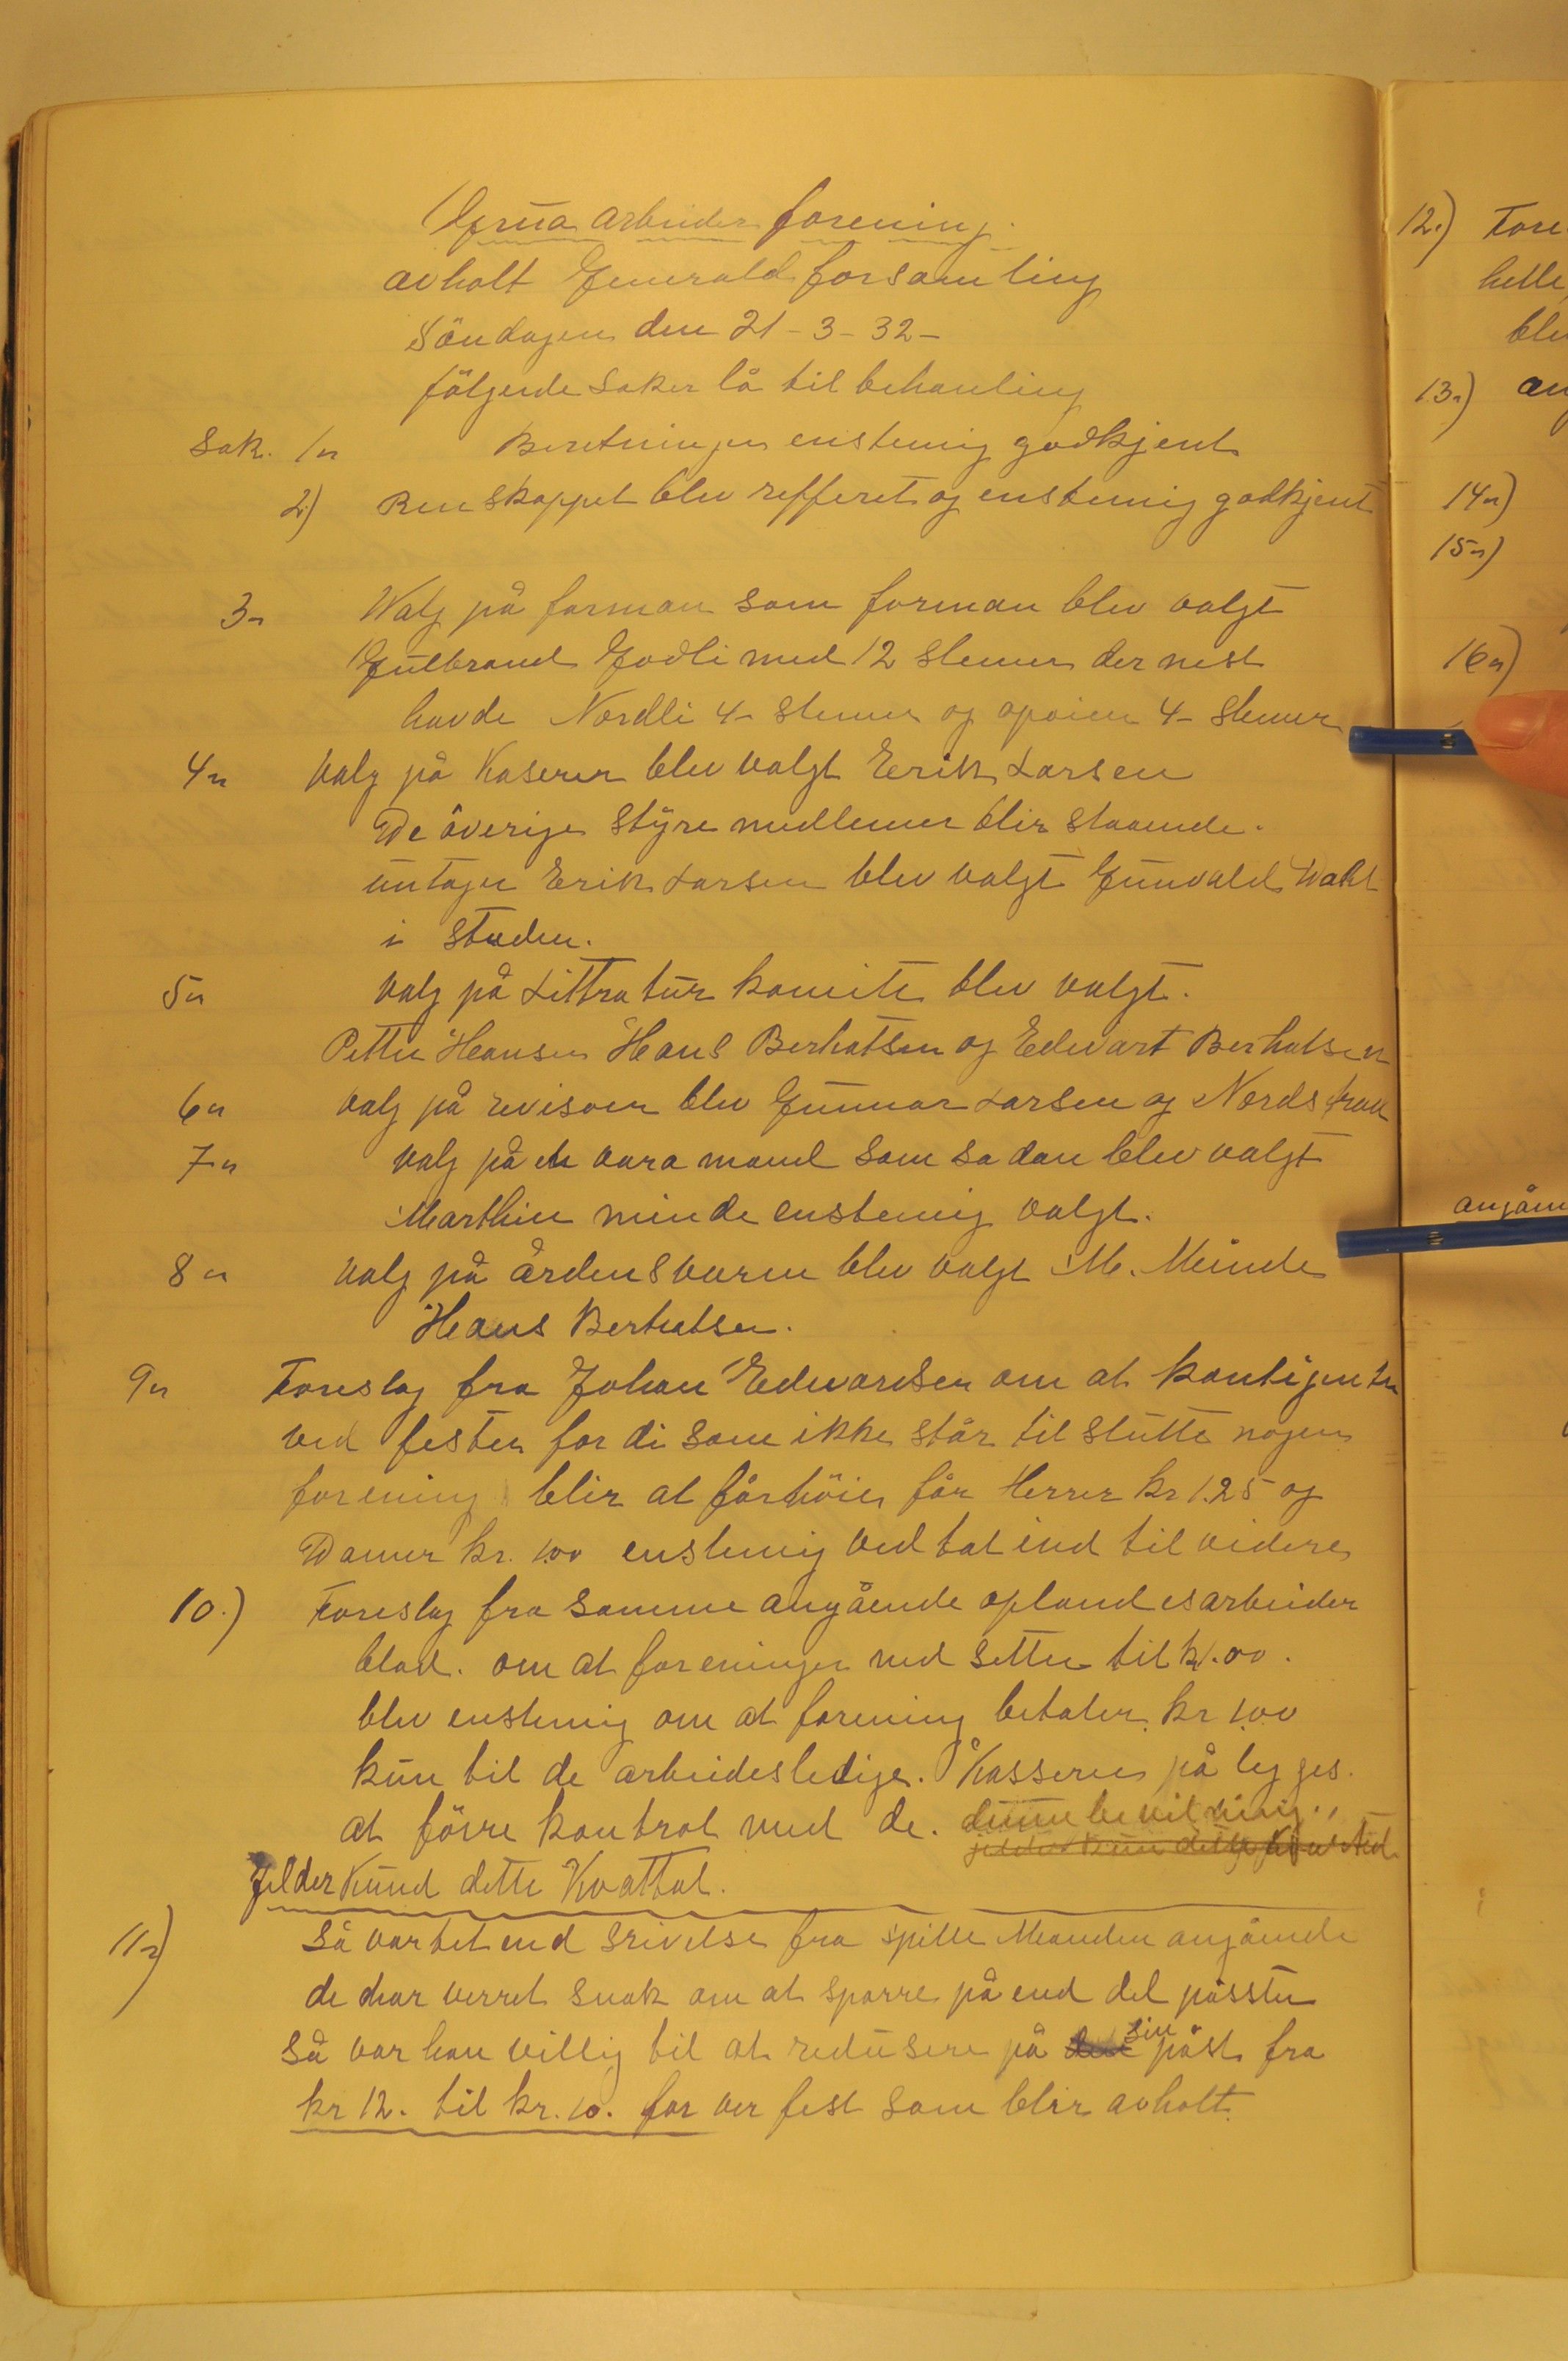 Grua arbeider forening.
avholt Generald forsamling
Söndagen den 21-3-32-
fölgende saker lå til behanling
Sak. 1. Beretningen enstemig godkjent
2) Renskappet blev refferet og enstemig godkjent
3. Walg på forman som forman blev valgt
Gulbrand Godli med 12 stemer der nest
havde Nordli 4- stemer og 4- stemer
4. Valg på Kaserer blev valgt Erik Larsen
De överige styre medlemer blir staaende.
untagen Erik Larsen blev valgt Gunvald Wahl
i steden.
5. Valg på Littratur komite blev valgt.
Petter Hansen Hans Berhatsen og Edvart Berhatsen
6. Valg på revisorer blev Gunnar Larsen og
7. Valg på en vara mand som sadan blev valgt
Marthin minde enstemig valgt.
8. Valg på årdensværen blev valgt M. Minde
Hans Berhatsen.
9. Foreslag fra Johan Edvardsen om at kontigenten
ved festen for di som ikke står til slutte nogen
forening blir at forhöie for Herrer kr 1.25 og
Damer kr. 1.00 enstemig vedtat ind til videre
10.) Foreslag fra samme angående oplandesarbeider
blad. om at foreningen ned setter til kr 1.00.
blev enstemig om at forening betaler kr 1.00
kun til de arbeidesledige. Kasseren på legges.
at förre kontrol med de. denne bevilning.,
gjelder kun dette
Jelder Kund dette Kvattal.
11.) Så var det end srivelse fra spille Manden angående
de har verret snak om at sparre på end del påsster
så var han villig til at redusere på sin påst fra
kr 12. til kr. 10. for ver fest som blir avholt.
12.) Fore
helle
blev
13.) an
14.)
15.)
16.)
angåen